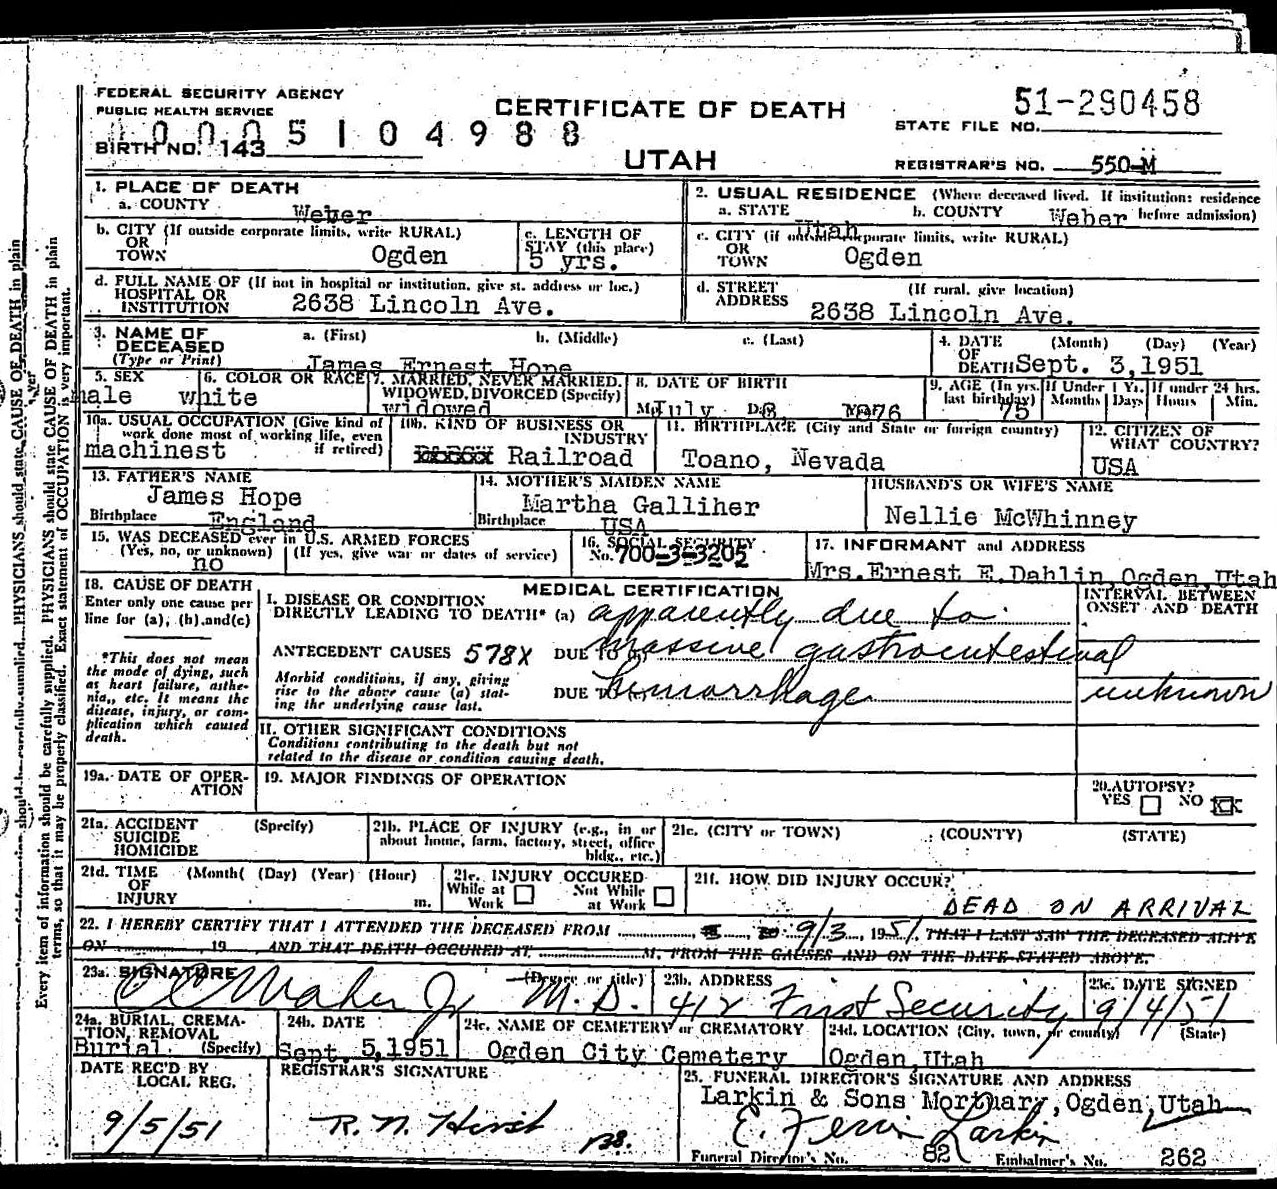 FEDERAL SECURITY AGENCY
PUBLIC HEALTH SERVICE
CERTIFICATE OF DEATH
51-290458
STATE FILE NO.
00005104988
BIRTH NO. 143
UTAH
REGISTRAR'S NO. 550-M
1. PLACE OF DEATH
a. COUNTY Weber
2. USUAL RESIDENCE (Where deceased lived. If institution: residence before admission)
a. STATE Utah b. COUNTY Weber
b. CITY (If outside corporate limits, write RURAL) OR TOWN Ogden
c. LENGTH OF STAY (this place) 5 yrs.
c. CITY (if outside corporate limits, write RURAL) OR TOWN Ogden
d. FULL NAME OF (If not in hospital or institution, give st. address or loc.) HOSPITAL OR INSTITUTION 2638 Lincoln Ave.
d. STREET ADDRESS (If rural, give location) 2638 Lincoln Ave.
3. NAME OF DECEASED (Type or Print) a. (First) b. (Middle) c. (Last)
James Ernest Hope
4. DATE OF DEATH (Month) (Day) (Year) Sept. 3,1951
5. SEX male
6. COLOR OR RACE white
7. MARRIED, NEVER MARRIED, WIDOWED, DIVORCED (Specify) widowed
8. DATE OF BIRTH July 8 1876
9. AGE (In yrs. last birthday) 75
If Under 1 Yr. Months Days
If under 24 hrs. Hours Min.
10a. USUAL OCCUPATION (Give kind of work done most of working life, even if retired) machinest
10b. KIND OF BUSINESS OR INDUSTRY Railroad
11. BIRTHPLACE (City and State or foreign country) Toano, Nevada
12. CITIZEN OF WHAT COUNTRY? USA
13. FATHER'S NAME James Hope
Birthplace England
14. MOTHER'S MAIDEN NAME Martha Galliher
Birthplace USA
HUSBAND'S OR WIFE'S NAME Nellie McWhinney
15. WAS DECEASED ever in U.S. ARMED FORCES
(Yes, no, or unknown) no (If yes, give war or dates of service)
16. SOCIAL SECURITY No. 700-3-3205
17. INFORMANT and ADDRESS
Mrs.Ernest E.Dahlin,Ogden,Utah
18. CAUSE OF DEATH
Enter only one cause per line for (a), (b).and(c)
*This does not mean the mode of dying, such as heart failure, asthenia,, etc. It means the disease, injury, or complication which caused death.
MEDICAL CERTIFICATION
INTERVAL BETWEEN ONSET AND DEATH
I. DISEASE OR CONDITION DIRECTLY LEADING TO DEATH* (a) apparently due to
ANTECEDENT CAUSES 578X DUE TO (b) massive gastrointestinal
Morbid conditions, if any, giving rise to the above cause (a) stating the underlying cause last.
DUE TO hemorrhage unknown
II. OTHER SIGNIFICANT CONDITIONS
Conditions contributing to the death but not related to the disease or condition causing death.
19a. DATE OF OPERATION
19. MAJOR FINDINGS OF OPERATION
20.AUTOPSY? YES NO
21a. ACCIDENT SUICIDE HOMICIDE (Specify)
21b. PLACE OF INJURY (e.g., in or about home, farm, factory, street, office bldg., etc.)
21c. (CITY or TOWN) (COUNTY) (STATE)
21d. TIME OF INJURY (Month( (Day) (Year) (Hour) m.
21e. INJURY OCCURED
While at Work Not While at Work
21f. HOW DID INJURY OCCUR?
DEAD ON ARRIVAL
22. I HEREBY CERTIFY THAT I ATTENDED THE DECEASED FROM 9/3, 1951, THAT I LAST SAW THE DECEASED ALIVE
ON , 19 AND THAT DEATH OCCURED AT M, FROM THE CAUSES AND ON THE DATE STATED ABOVE.
23a. SIGNATURE (Degree or title) M.D.
23b. ADDRESS 412 First Security
23c. DATE SIGNED 9/4/51
24a. BURIAL, CREMATION, REMOVAL (Specify) Burial
24b. DATE Sept. 5,1951
24c. NAME OF CEMETERY or CREMATORY Ogden City Cemetery
24d. LOCATION (City, town, or county) (State) Ogden,Utah
DATE REC'D BY LOCAL REG. 9/5/51
REGISTRAR'S SIGNATURE
25. FUNERAL DIRECTOR'S SIGNATURE AND ADDRESS
Larkin & Sons Mortuary,Ogden,Utah
Larkin
Funeral Director's No. 82 Embalmer's No. 262
Every item of information should be carefully supplied. PHYSICIANS should state CAUSE OF DEATH in plain
terms, so that it may be properly classified. Exact statement of OCCUPATION is very important.